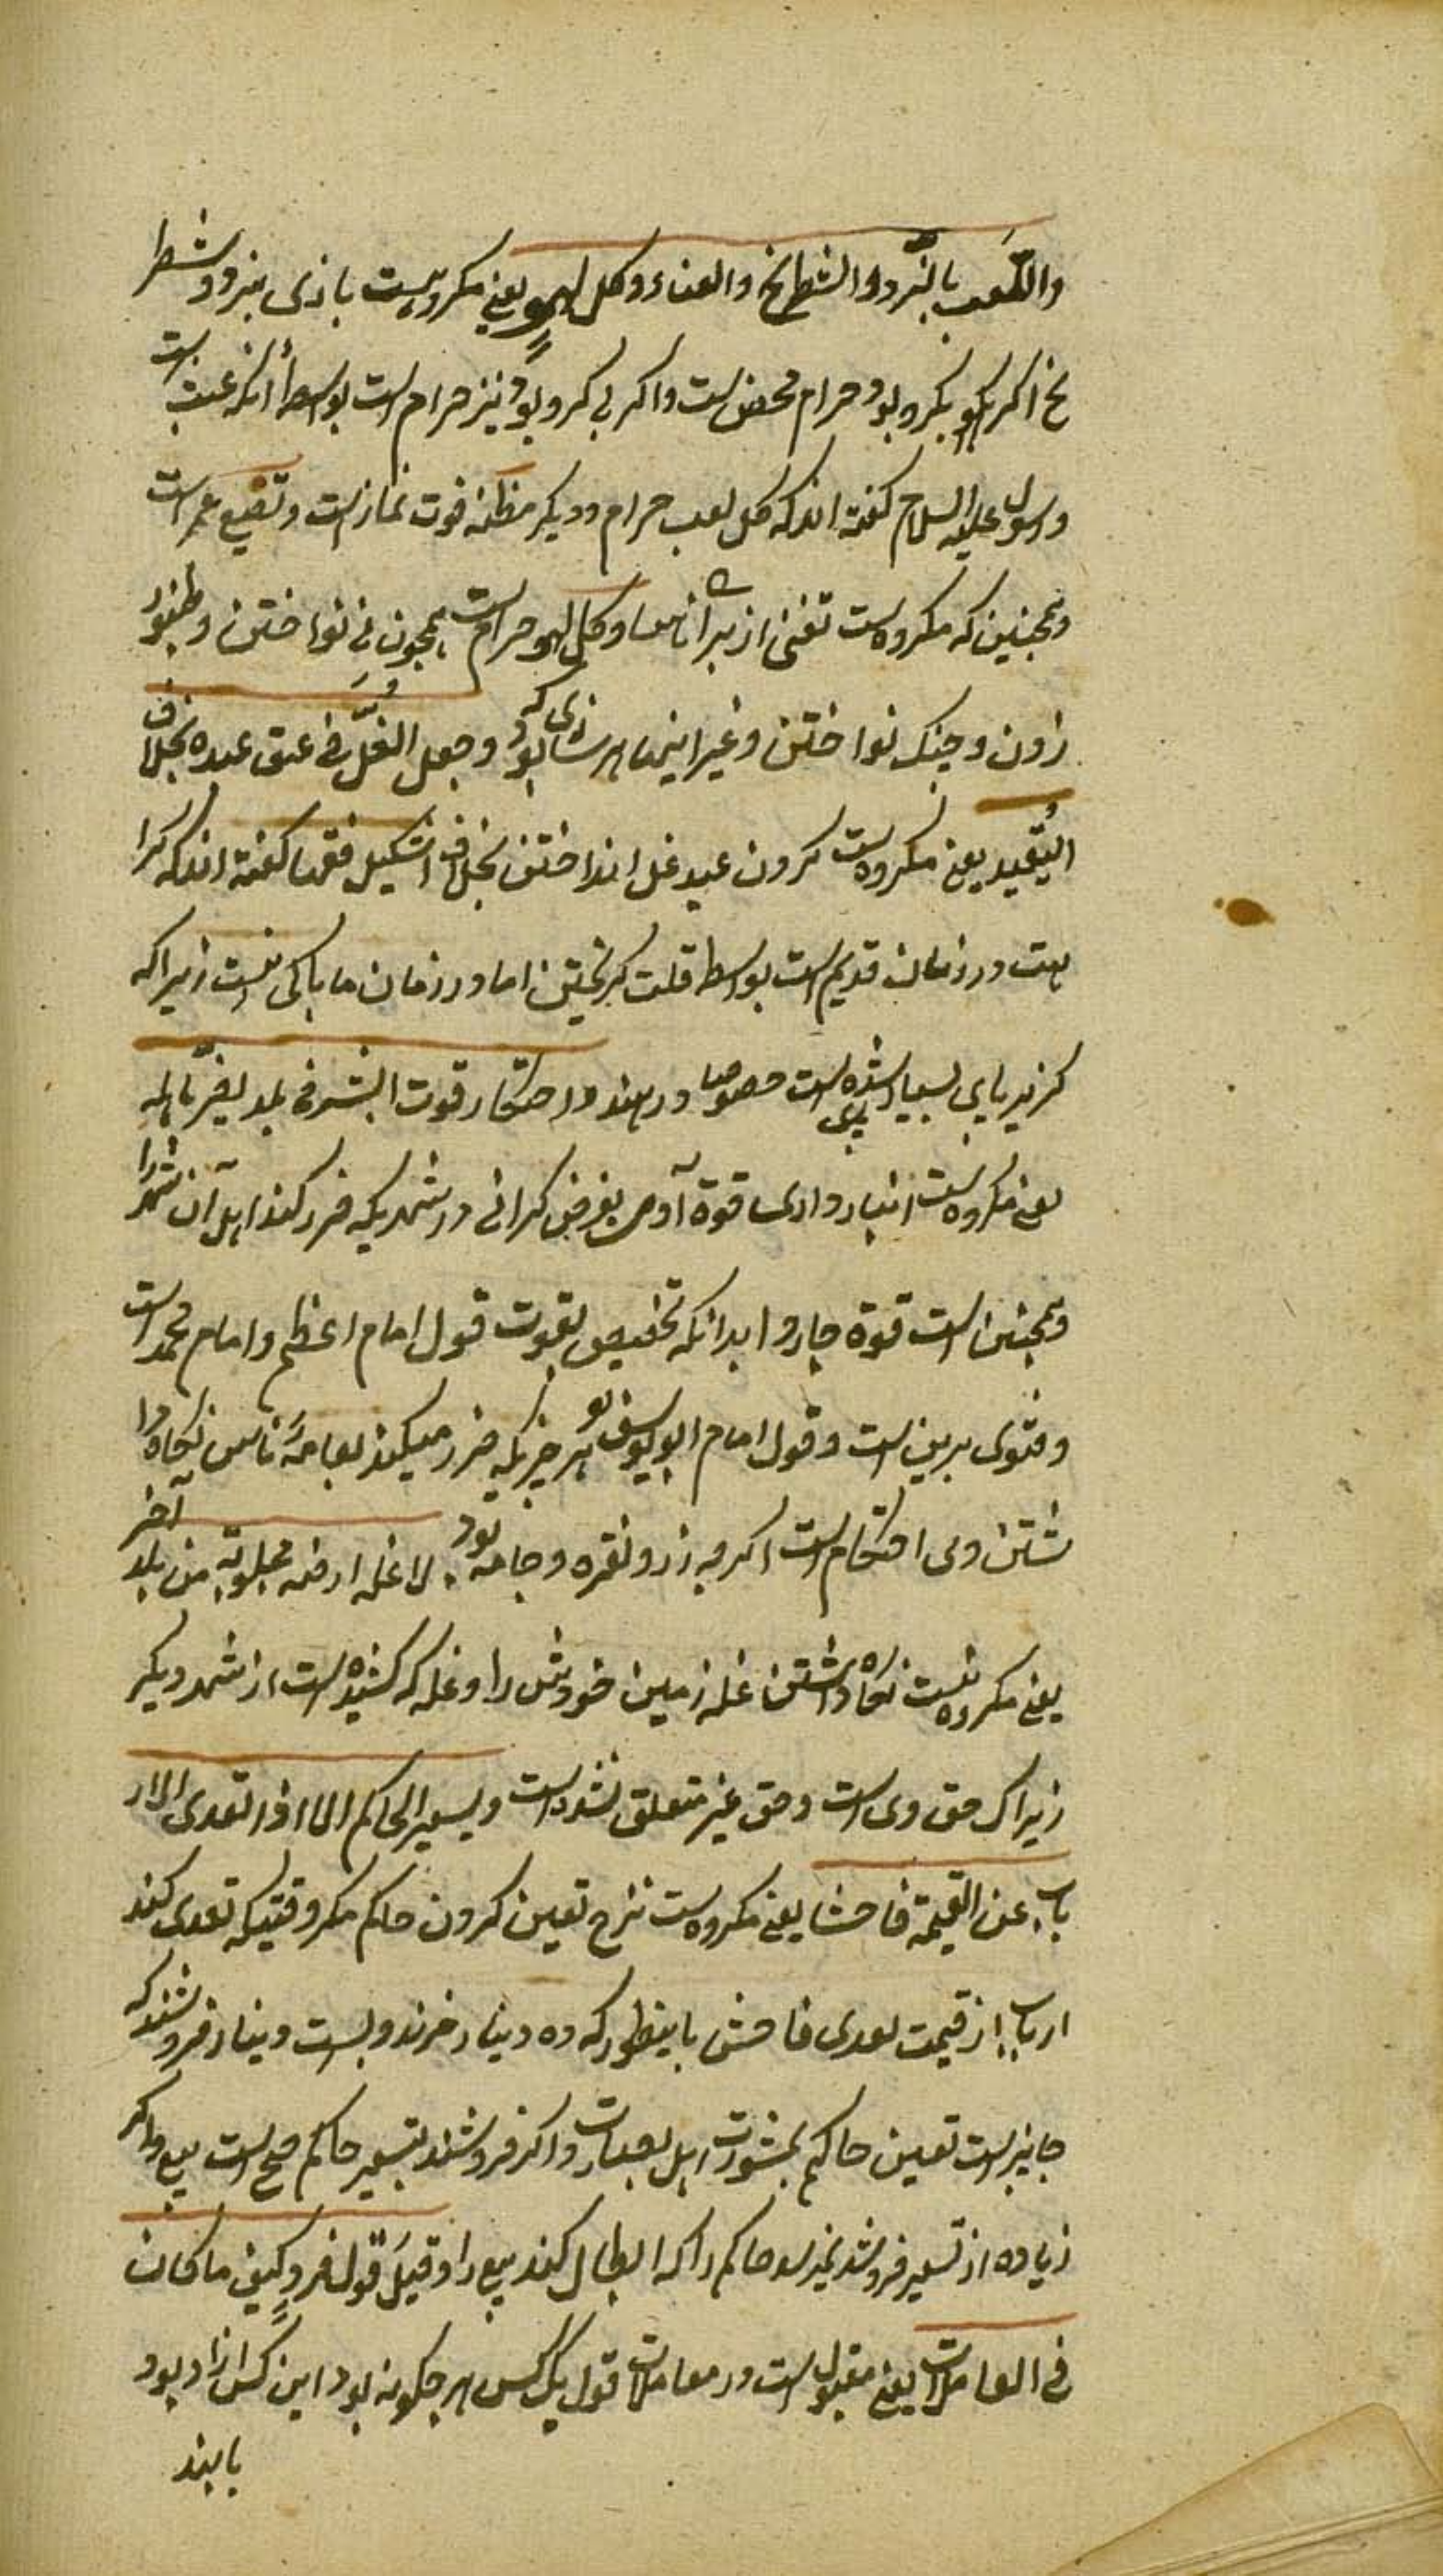 واللعب بالنرد والشطرنج والغناء وكل لهو يعنى مكروهست بازى بنرد و شطر
نج اكر لهو بكرو بود حرام محض است واكر بى كرو بود نيز حرام است بواسطۀ آنكه عبث است
ورسول عليه السلام كفته اند كه كل لعب حرام وديكر مظنه فوت نماز است و تضيع عمر است
وهمچنين كه مكروهست تغنى از براى ناس وكل لهو حرام است همچون نى نواختن و طنبور
زدن و چنك نواختن وغير اينها هر سازى كه بود وجعل الغل فى عنق عبده بخلاف
التقييد يعنى مكروهست كردن عبد غل انداختن بخلاف اشكيل فقها كفته اند كه كرا
هت در زمان قديم است بواسطه قلت كريختن اما در زمان ما باكى نيست زيرا كه
كريزپاى بسيار شده است خصوصا در هند واحتكار قوت البشر فى بلد يضر باهله
يعنى مكروهست انبار قوة آدمى بغرض كرانى در شهريكه ضرر كند اهل آن شهر را
وهمچنين است قوة چاروا بدانكه تخصيص بقوت قول امام اعظم وامام محمد است
وفتوى برين است وقول امام ابو يوسف هر چيزيكه ضرر ميكند بعامۀ ناس نكاه دا
شتن وى احتكار است اكر چه زر و نقره و جامه بود لا غله ارضه مجلوبة من بلد آخر
يعنى مكروه نيست نكاه داشتن غله زمين خودش را و غله كه كشيده است از شهر ديكر
زيراك حق وى است وحق غير متعلق نشده است ويسعر الحاكم الا اذا تعدى الار
باب عن القيمة فاحشا يعنى مكروهست نرخ تعين كردن حاكم مكر وقتيكه تعدى كند
ارباب از قيمت تعدى فاحش باينطور كه ده دينار خرند و بيست دينار فروشند كه
جايز است تعين حاكم بمشورت اهل بصارت واكر فروشند بتسعير حاكم صح است بيع واكر
زياده از تسعير فروشد نميرسد حاكم را كه ابطال كند بيع را وقبل قول فرد كيف ما كان
فى المعاملات يعنى مقبول است در معاملات قول يك كس هر چكونه بود اين كس آزاد بود
يا بنده